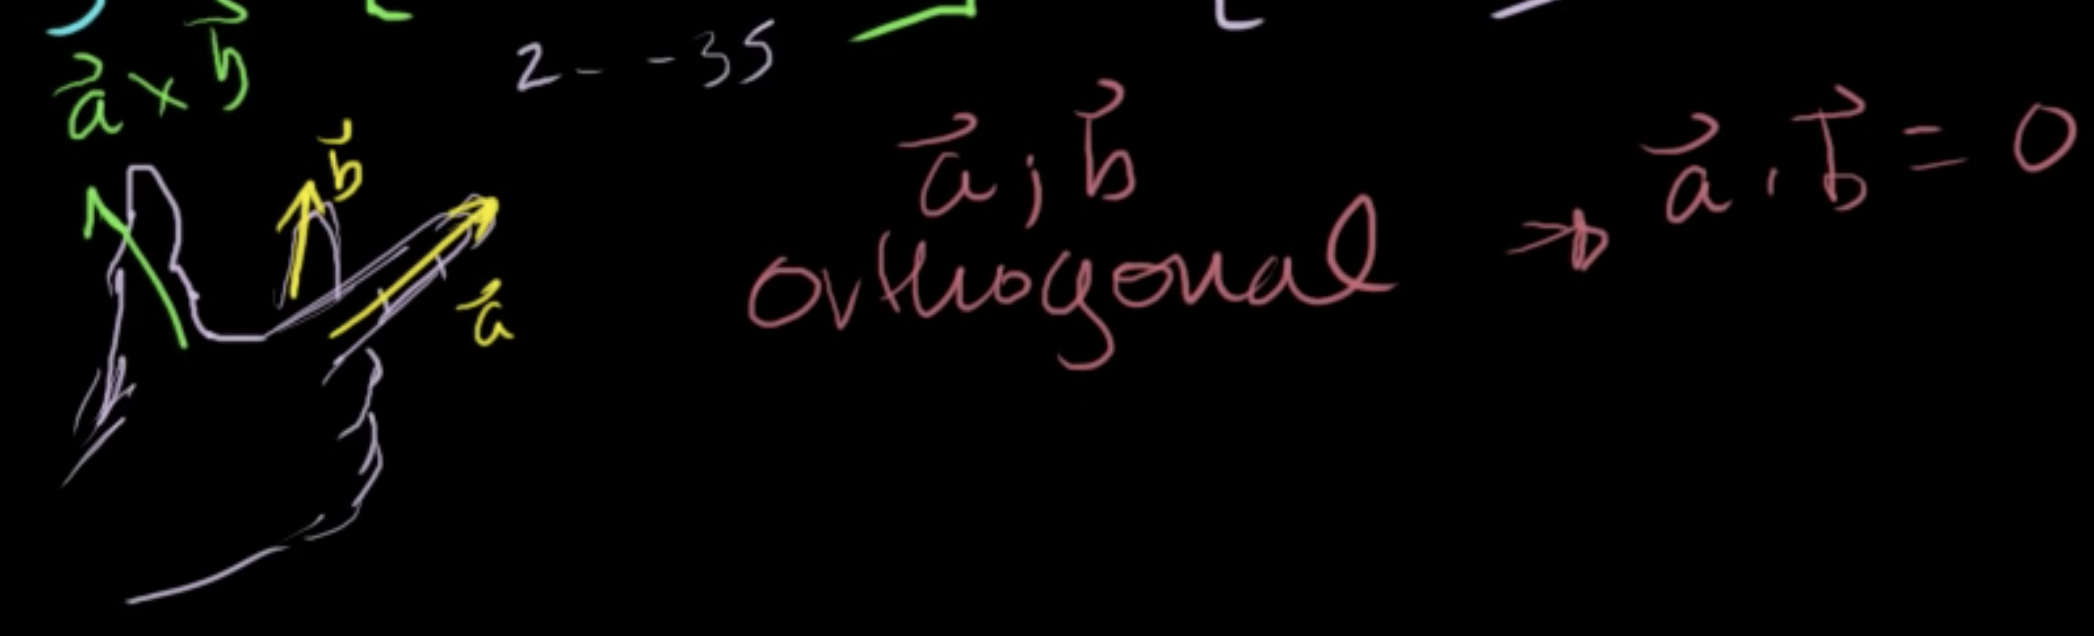 a⃗ × b⃗
2 - - -35
b⃗
a⃗
a⃗ ; b⃗
orthogonal → a⃗ . b⃗ = 0